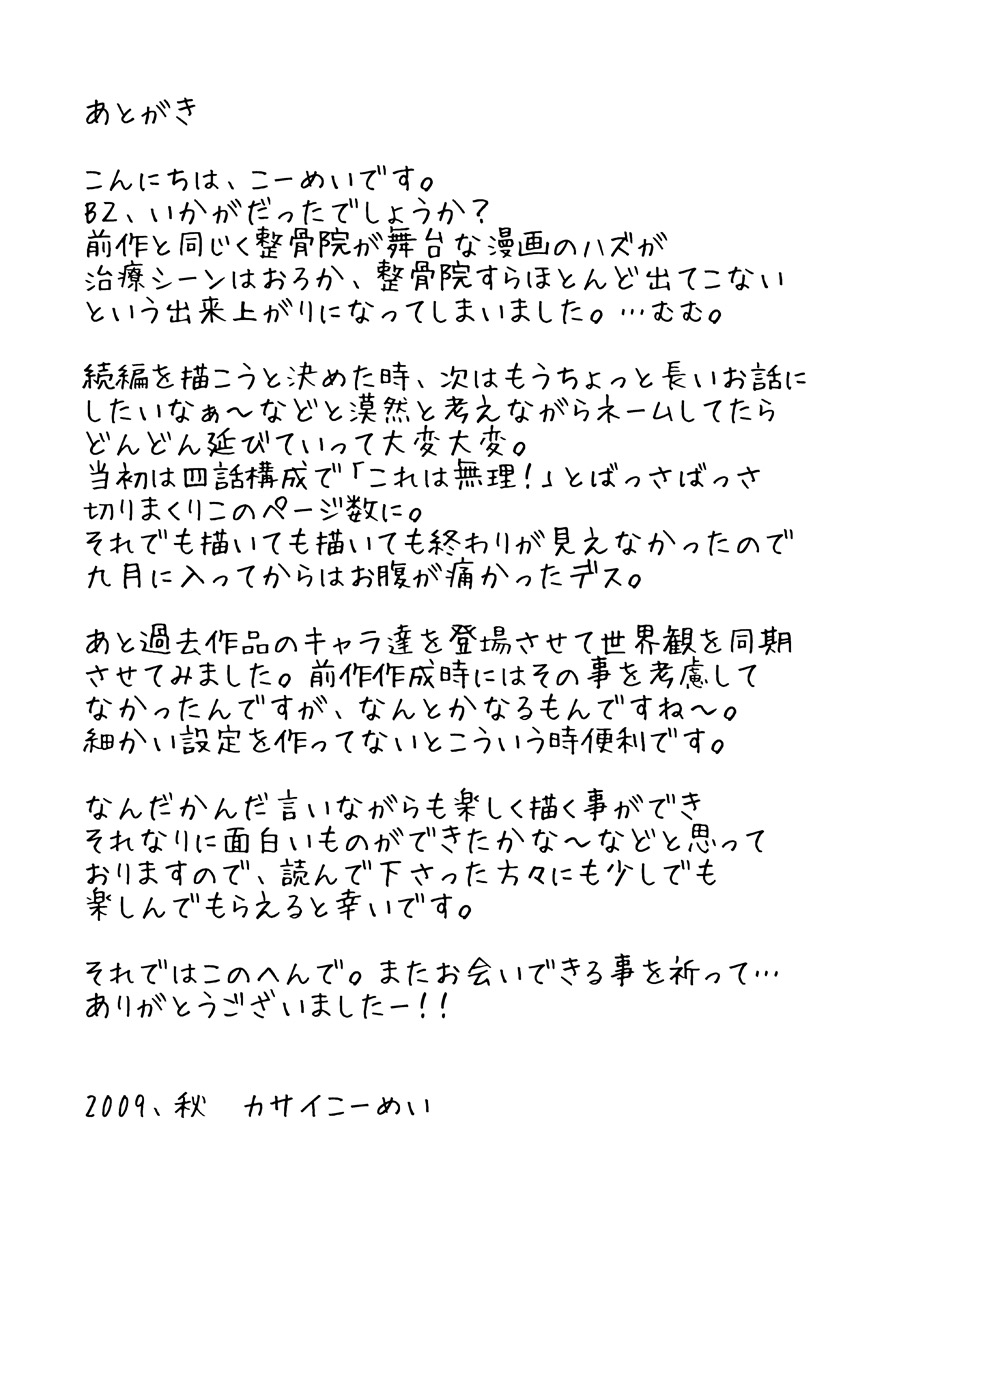 あとがき
こんにちは、こーめいです。
B2、いかがだったでしょうか？
前作と同じく整骨院が舞台な漫画のハズが
治療シーンはおろか、整骨院すらほとんど出てこない
という出来上がりになってしまいました。…むむ。
続編を描こうと決めた時、次はもうちょっと長いお話に
したいなぁ〜などと漠然と考えながらネームしてたら
どんどん延びていって大変大変。
当初は四話構成で「これは無理！」とばっさばっさ
切りまくりこのページ数に。
それでも描いても描いても終わりが見えなかったので
九月に入ってからはお腹が痛かったデス。
あと過去作品のキャラ達を登場させて世界観を同期
させてみました。前作作成時にはその事を考慮して
なかったんですが、なんとかなるもんですね〜。
細かい設定を作ってないとこういう時便利です。
なんだかんだ言いながらも楽しく描く事ができ
それなりに面白いものができたかな〜などと思って
おりますので、読んで下さった方々にも少しでも
楽しんでもらえると幸いです。
それではこのへんで。またお会いできる事を祈って…
ありがとうございましたー！！
2009、秋　カサイこーめい